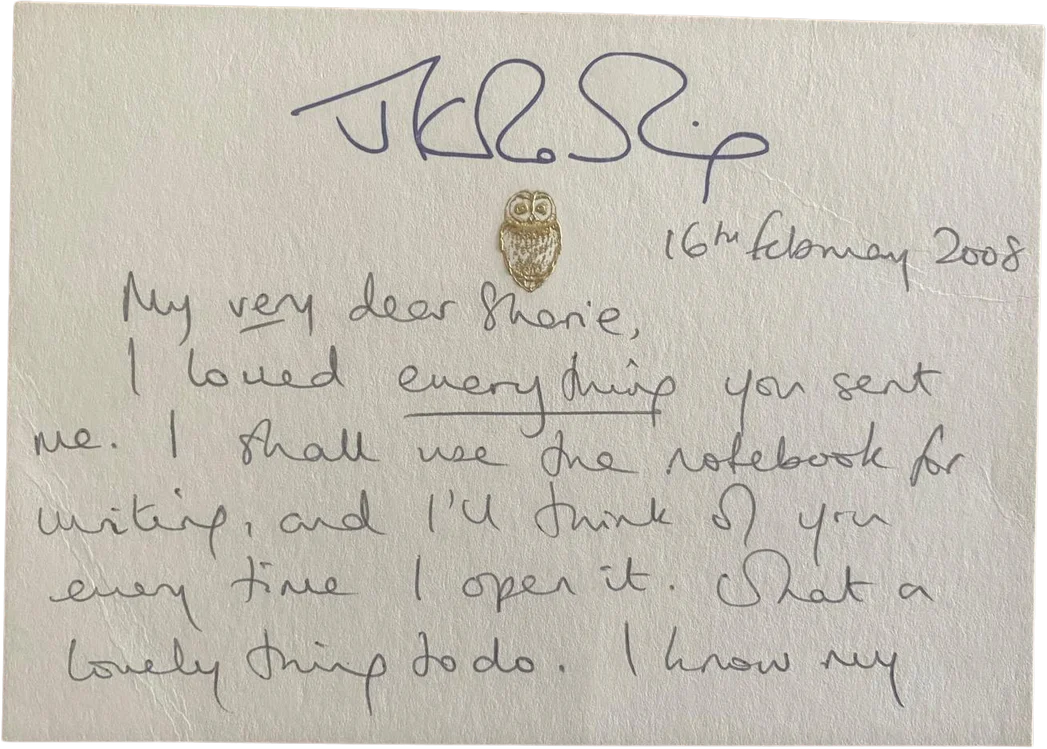 JKRowling
16th February 2008
My very dear Sharie,
I loved everything you sent
me. I shall use the notebook for
writing, and I'll think of you
every time I open it. What a
lovely thing to do. I know my